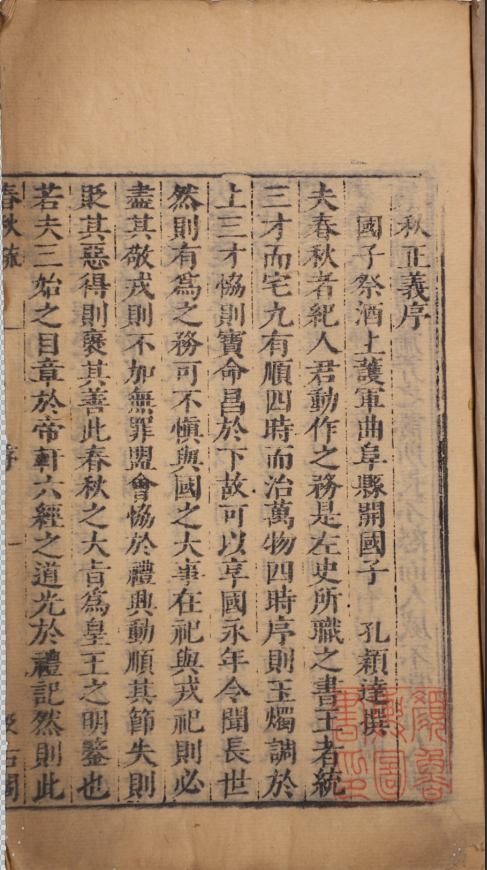 秋正義序
國子祭酒上護軍曲阜縣開國子 孔穎達撰
夫春秋者紀人君動作之務是左史所職之書王者統
三才而宅九有順四時而治萬物四時序則玉燭調於
上三才恊則寶命昌於下故可以享國永年令聞長世
然則有爲之務可不愼與國之大事在祀與戎祀則必
盡其敬戎則不加無罪盟會恊於禮興動順其節失則
貶其惡得則襃其善此春秋之大旨爲皇王之明鑒也
若夫三始之目章於帝軒六經之道光於禮記然則此
春秋疏 序 一 汲古閣